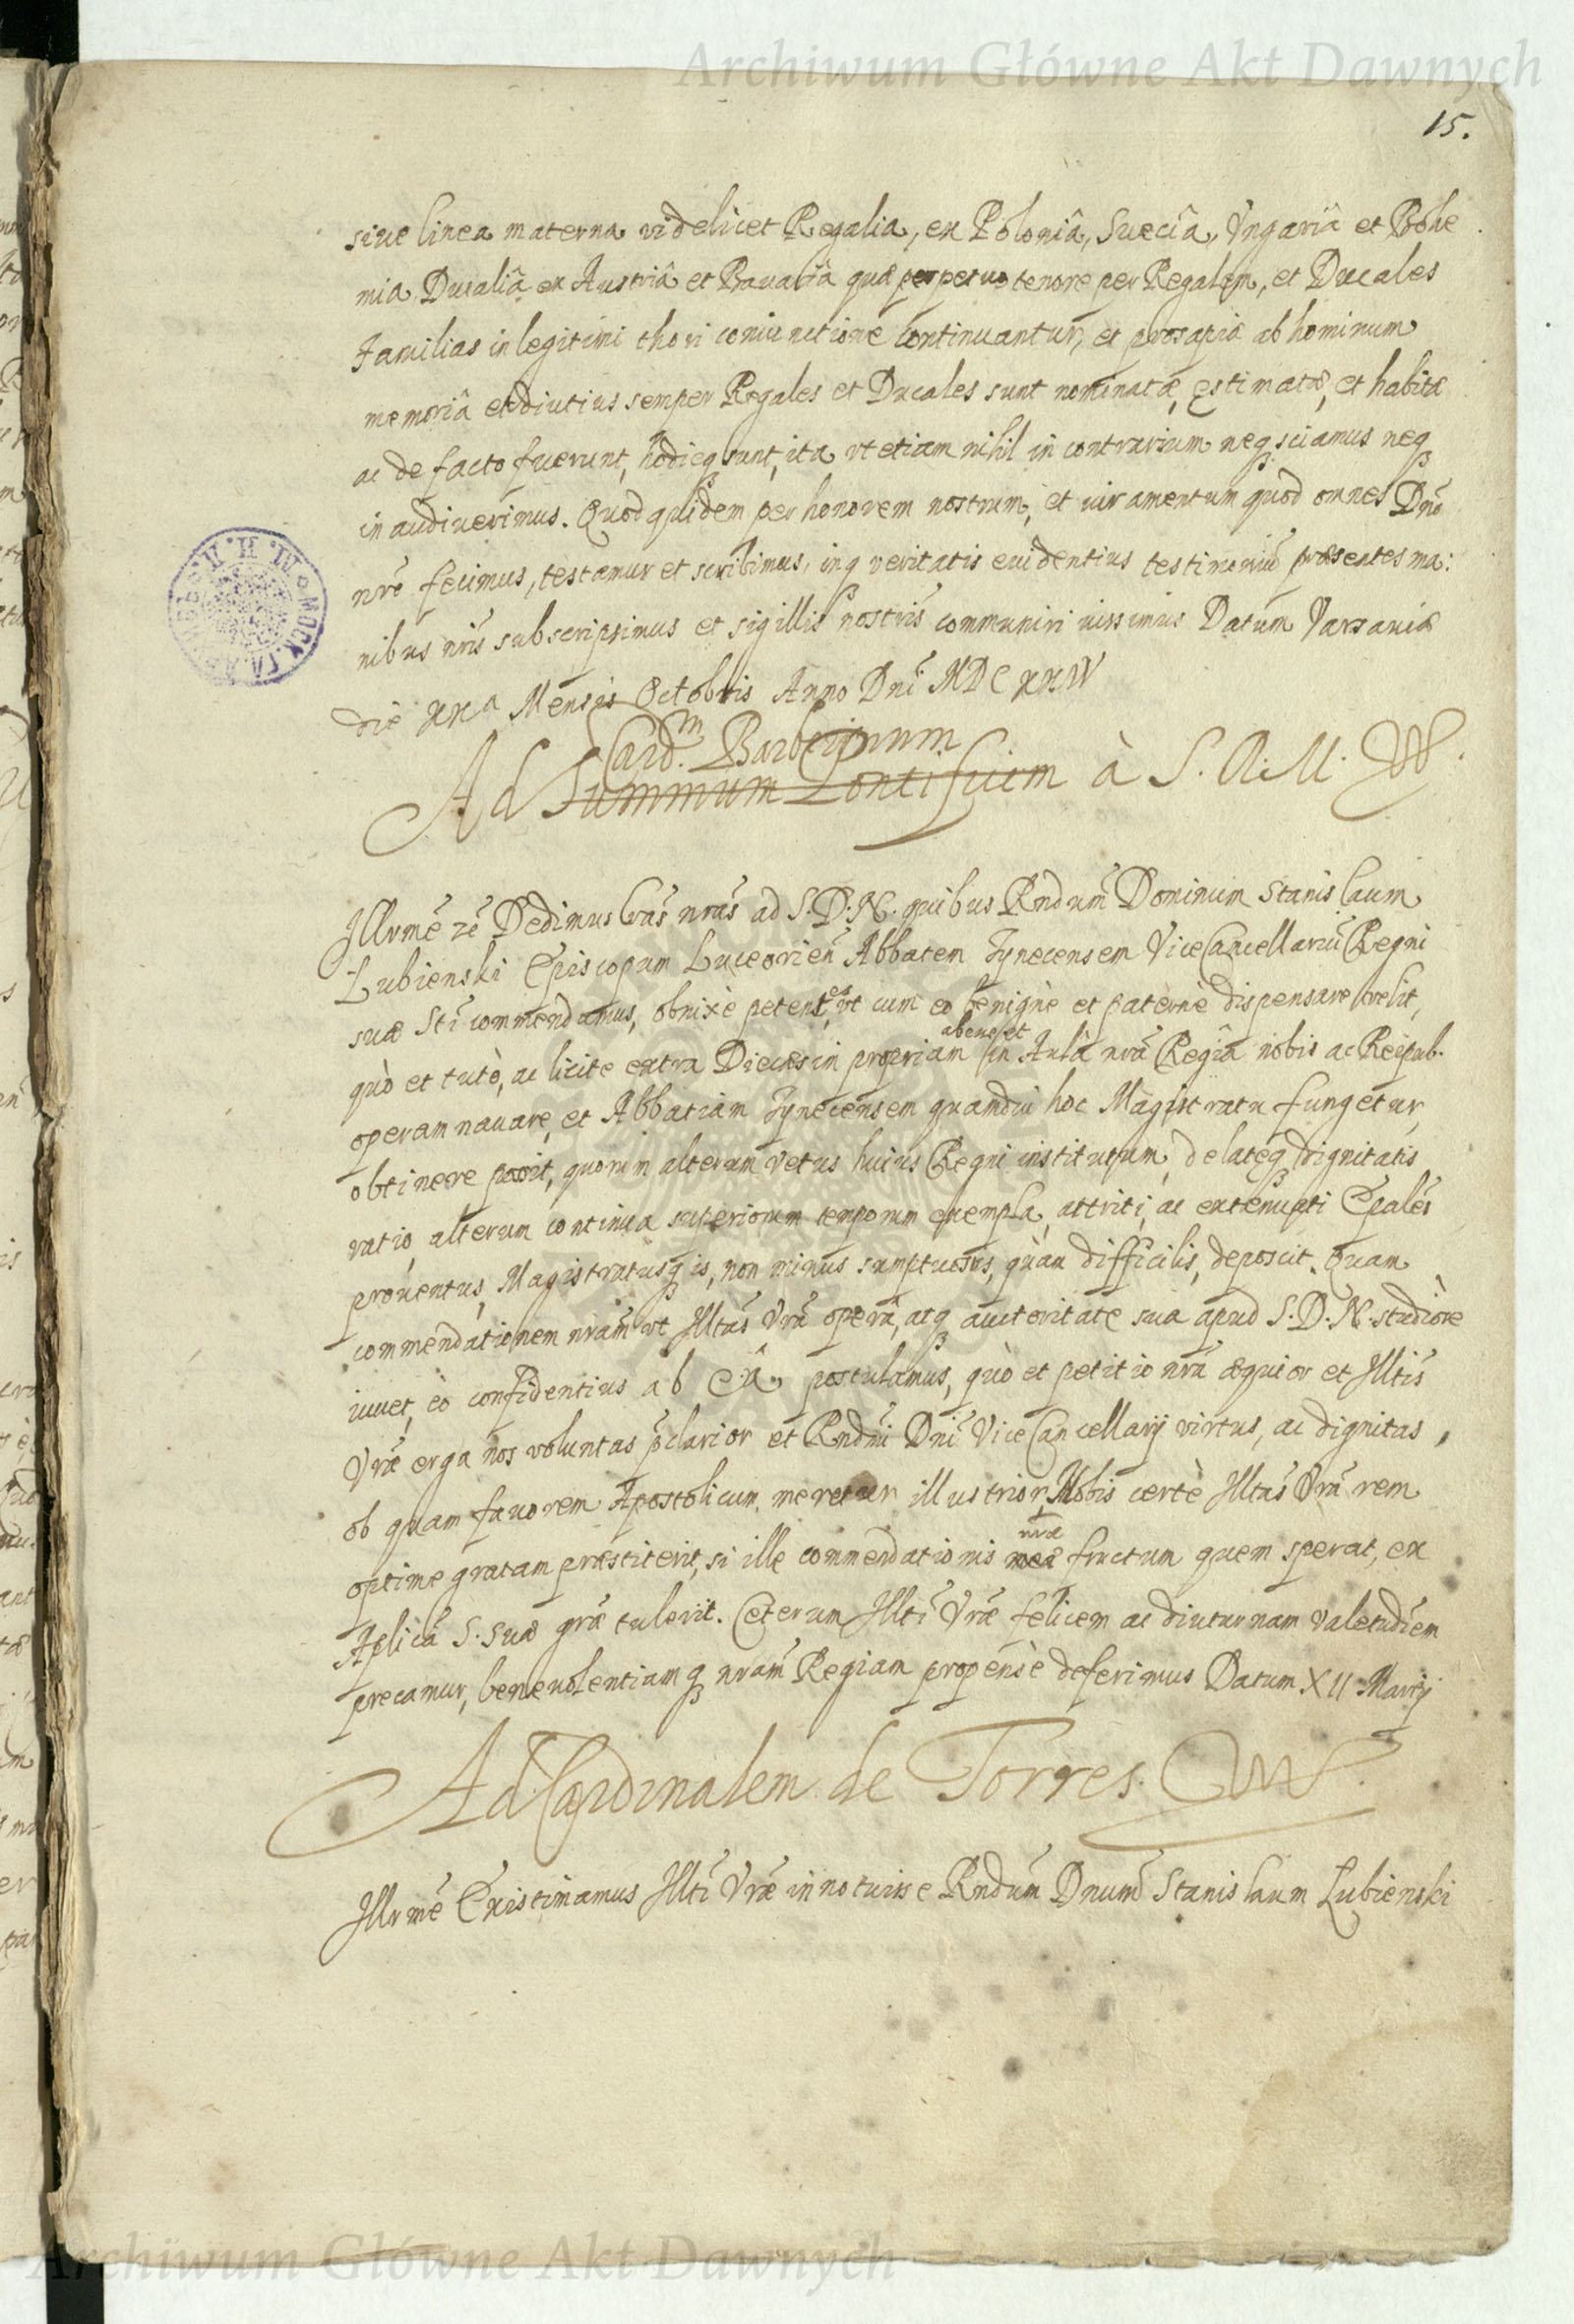 Archiwum Główne Akt Dawnych
15.
siue linea materna videlicet Regalia, ex Poloniâ, Sueciâ, Vngariâ et Bohe
mia Ducaliâ ex Austriâ et Bauariâ quæ perpetuo tenore per Regalem, et Ducales
Familias in legitimi thori coniunctione continuantur, et prosapiæ ab hominum
memoriâ et diutius semper Regales et Ducales sunt nominatæ, estimatæ, et habitæ
ac de facto fuerunt, hodieq sunt, ita vt etiam nihil in contrarium neq sciamus neq
inaudiuerimus. Quod quidem per honorem nostrum, et iuramentum quod omnes Dno
nro fecimus, testamur et scribimus, inq veritatis euidentius testimoniũ præsentes ma:
nibus nris subscripsimus et sigillis nostris communiri iussimus Datum Varsauiæ
die xxa Mensis Octobris Anno Dni MDCXXIV
Card.m Barberinum
Ad Summum Pontificem à S. R. M.
Illrme ze Dedimus lras nras ad S. D. N. quibus Rndum Dominum Stanislaum
Lubienski Episcopum Luceorien Abbatem Tynecensem ViceCancellariũ Regni
suæ Sti commendamus, obnixè petentes, vt cum eo benignè et paternè dispensare velit,
abene et
quò et tutò, ac licite extra Diecesin propriam in Aulâ nrâ Regiâ nobis ac Reipub.
operam nauare, et Abbatiam Tynecensem quamdiu hoc Magistratu fungetur,
obtinere possit, quorum alterum vetus huius Regni institutum, delateq dignitatis
ratio, alterum continua superiorum temporum exempla, attriti, ac extenuati Epales
prouentus, Magistratusq is, non minus sumptuosus, quàm difficilis, deposcit. Quam
commendationem nram vt Illtas Vra operâ, atq auctoritate sua apud S. D. N. studiose
iuuet, eò confidentius ab Eâ postulamus, quò et petitio nra æquior et Illtis
Vræ erga nos voluntas pclarior et Rndmi Dni ViceCancellarij virtus, ac dignitas,
ob quam fauorem Apostolicum meretur illustrior, Nobis certè Illtas Vra rem
nræ
optime gratam præstiterit, si ille commendationis meæ fructum quem sperat, ex
Aplicâ S. Suæ grâ tulerit. Ceterum Illti Vræ felicem ac diuturnam valetudiem
precamur, beneuolentiamq nram Regiam propensè deferimus Datum XII Martij
Ad Cardinalem de Torres.
Illrme Existimamus Illti Vræ innotuisse Rndum Dnum Stanislaum Lubienski
Archiwum Główne Akt Dawnych